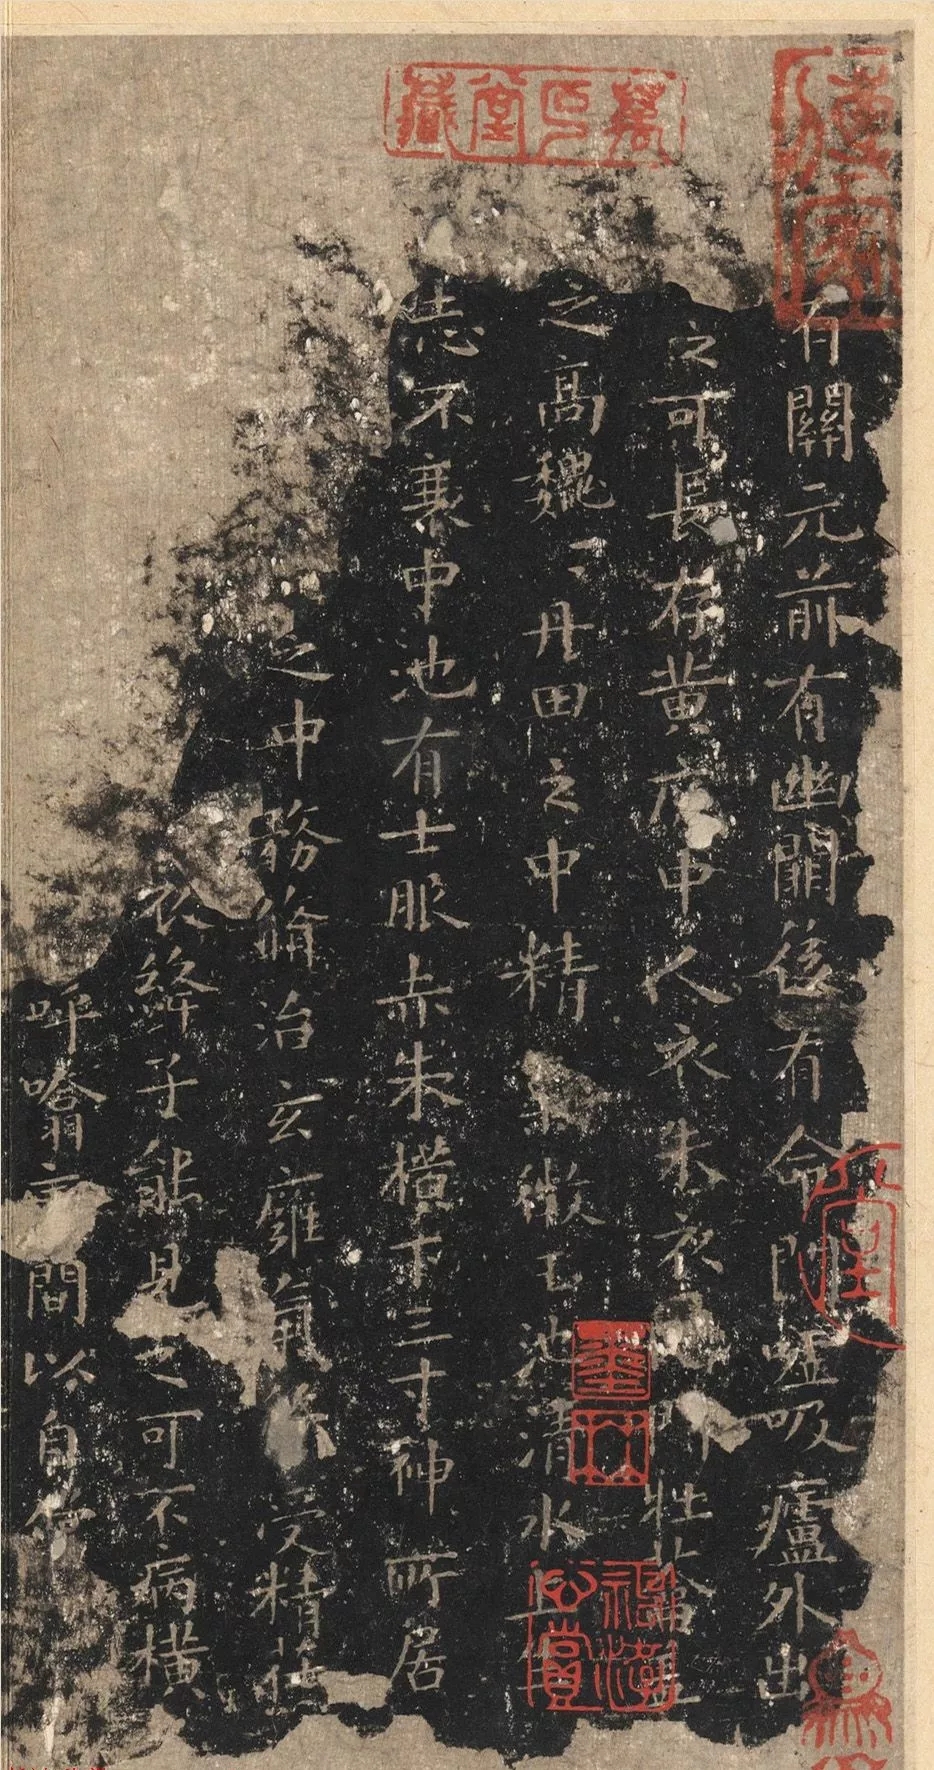 有關元前有幽闕後有命門噓吸廬外出
之可長存黃庭中人衣朱衣門壯籥
之高巍〻丹田之中精氣微玉池清水上
志不衰中池有士服赤朱橫下三寸神所居
之中務脩治玄癰氣受精符
衣絳子能見之可不病橫
呼噏間以自償